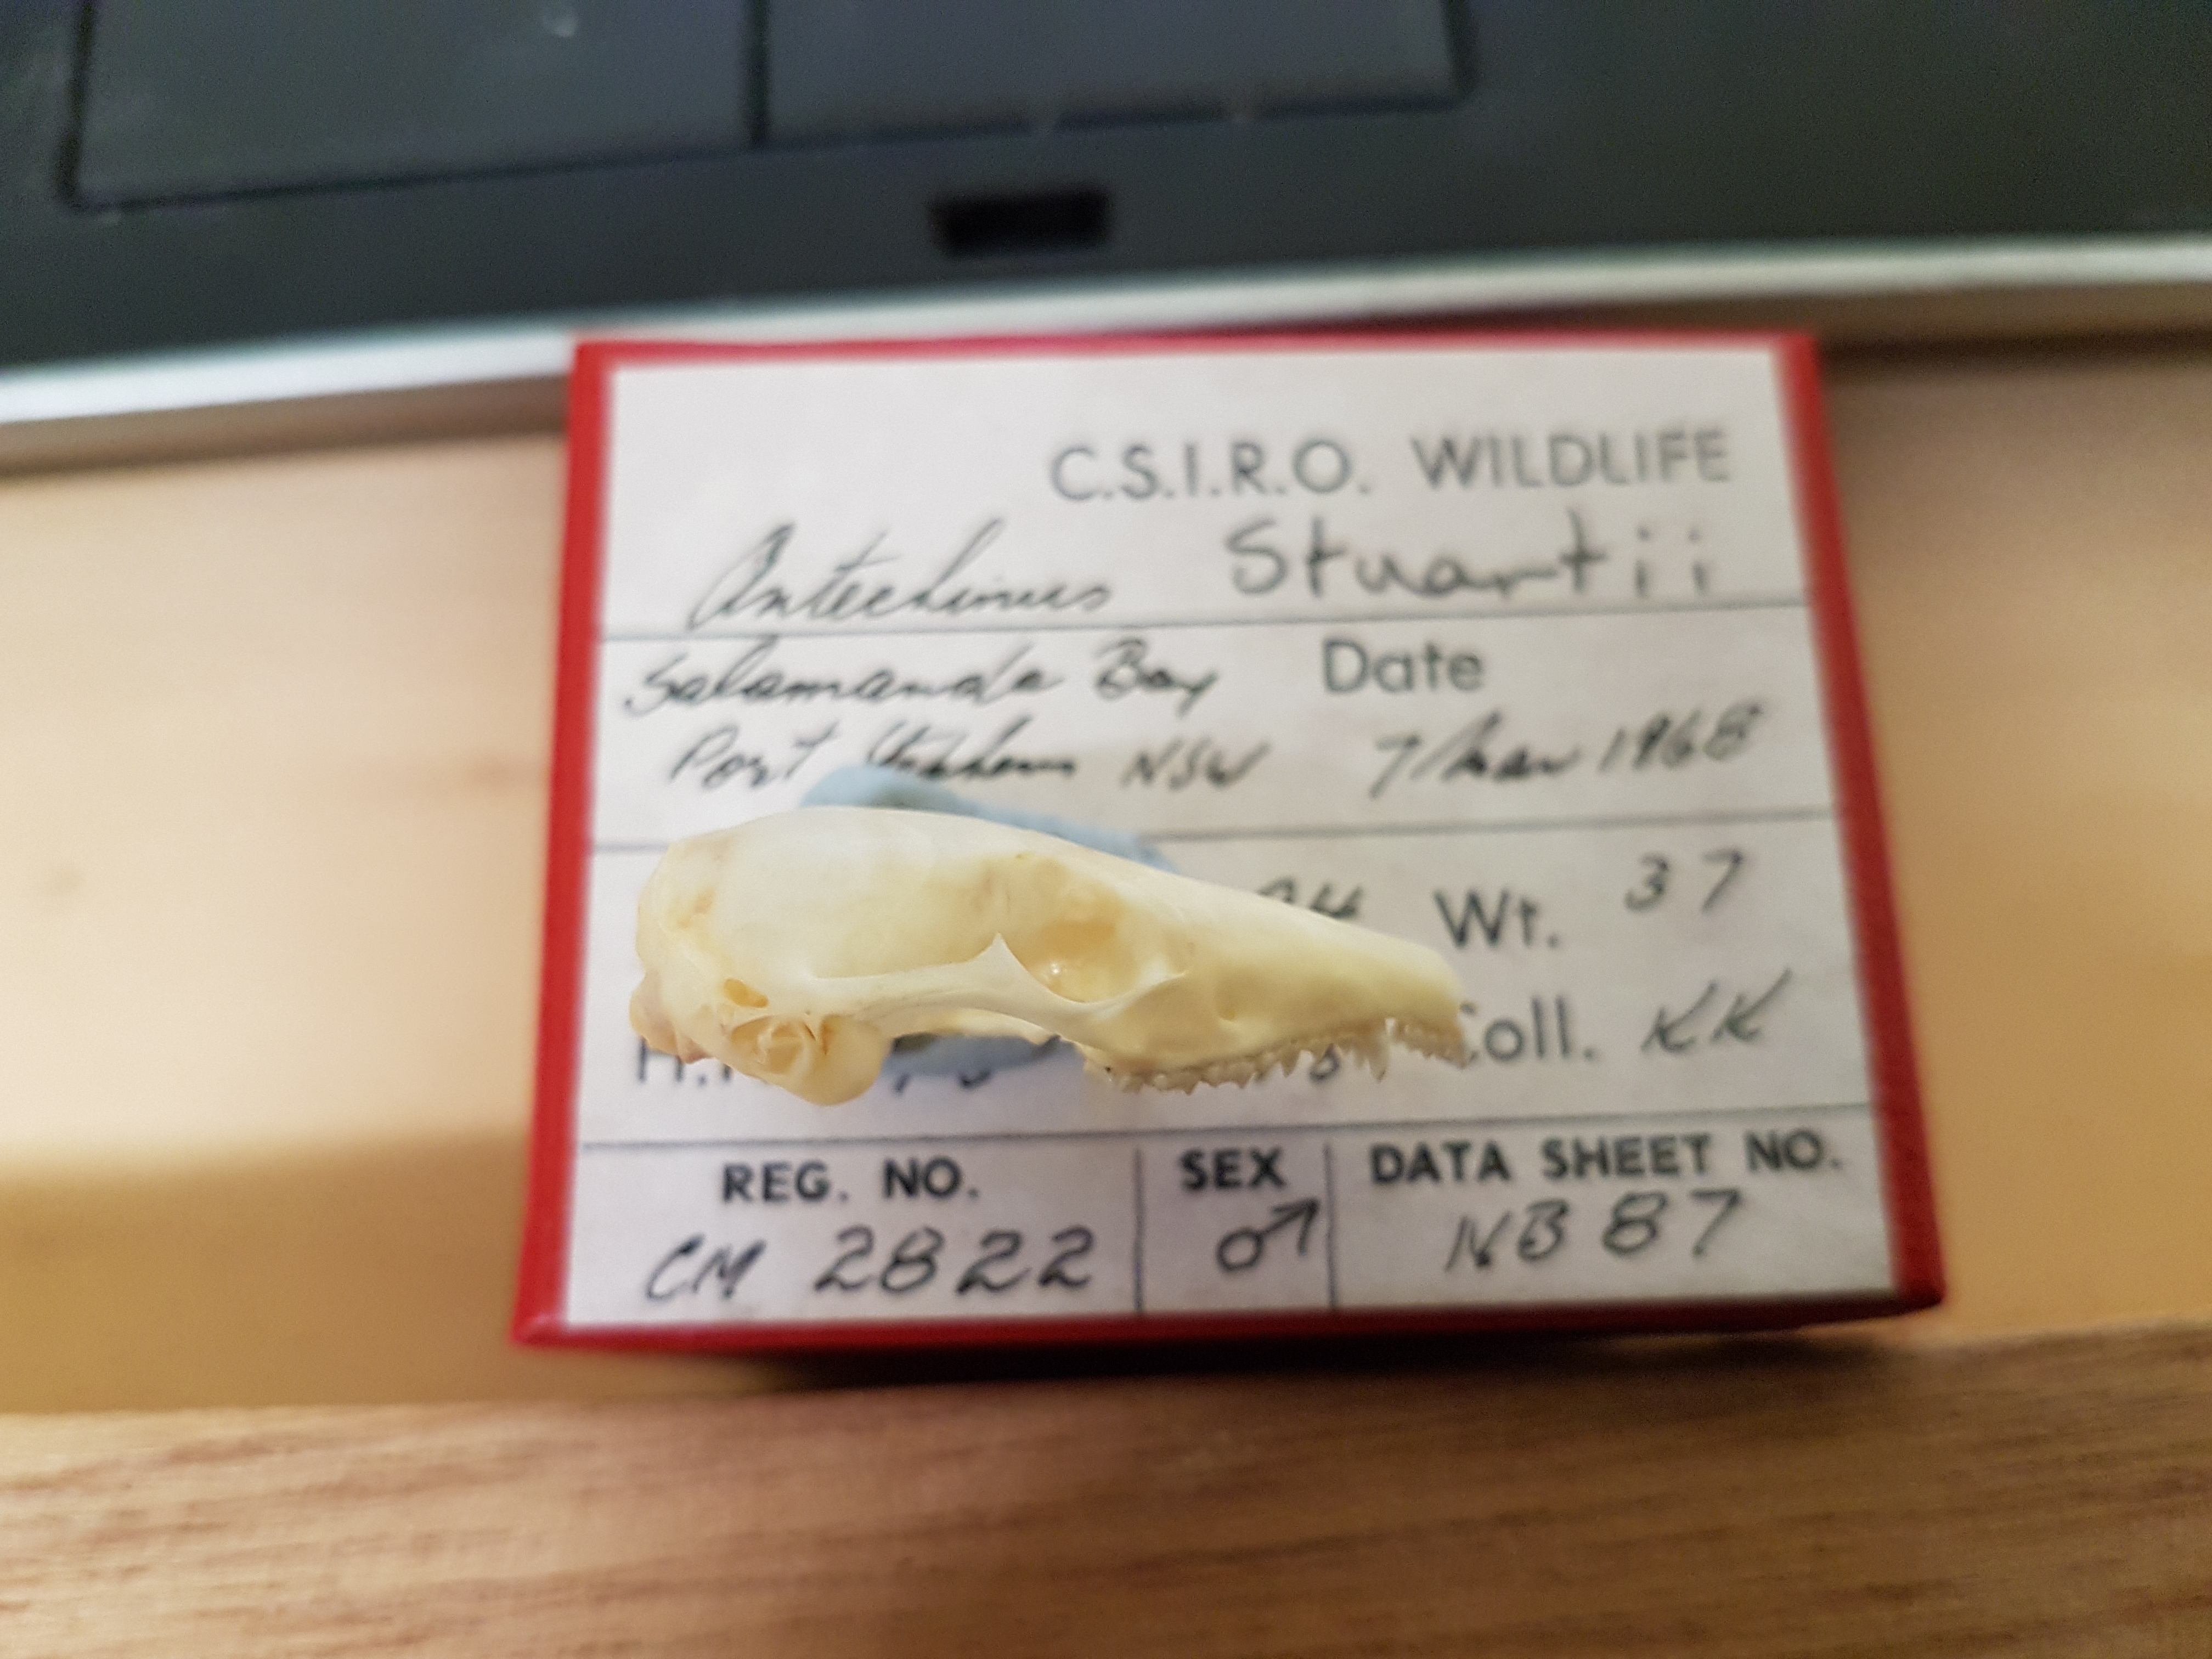 C.S.I.R.O. WILDLIFE
Antechinus Stuartii
Salamanda Bay Date
Port Stephens NSW 7 Mar 1968
Wt. 37
Coll. KK
REG. NO. SEX DATA SHEET NO.
CM 2822 ♂ NB 87